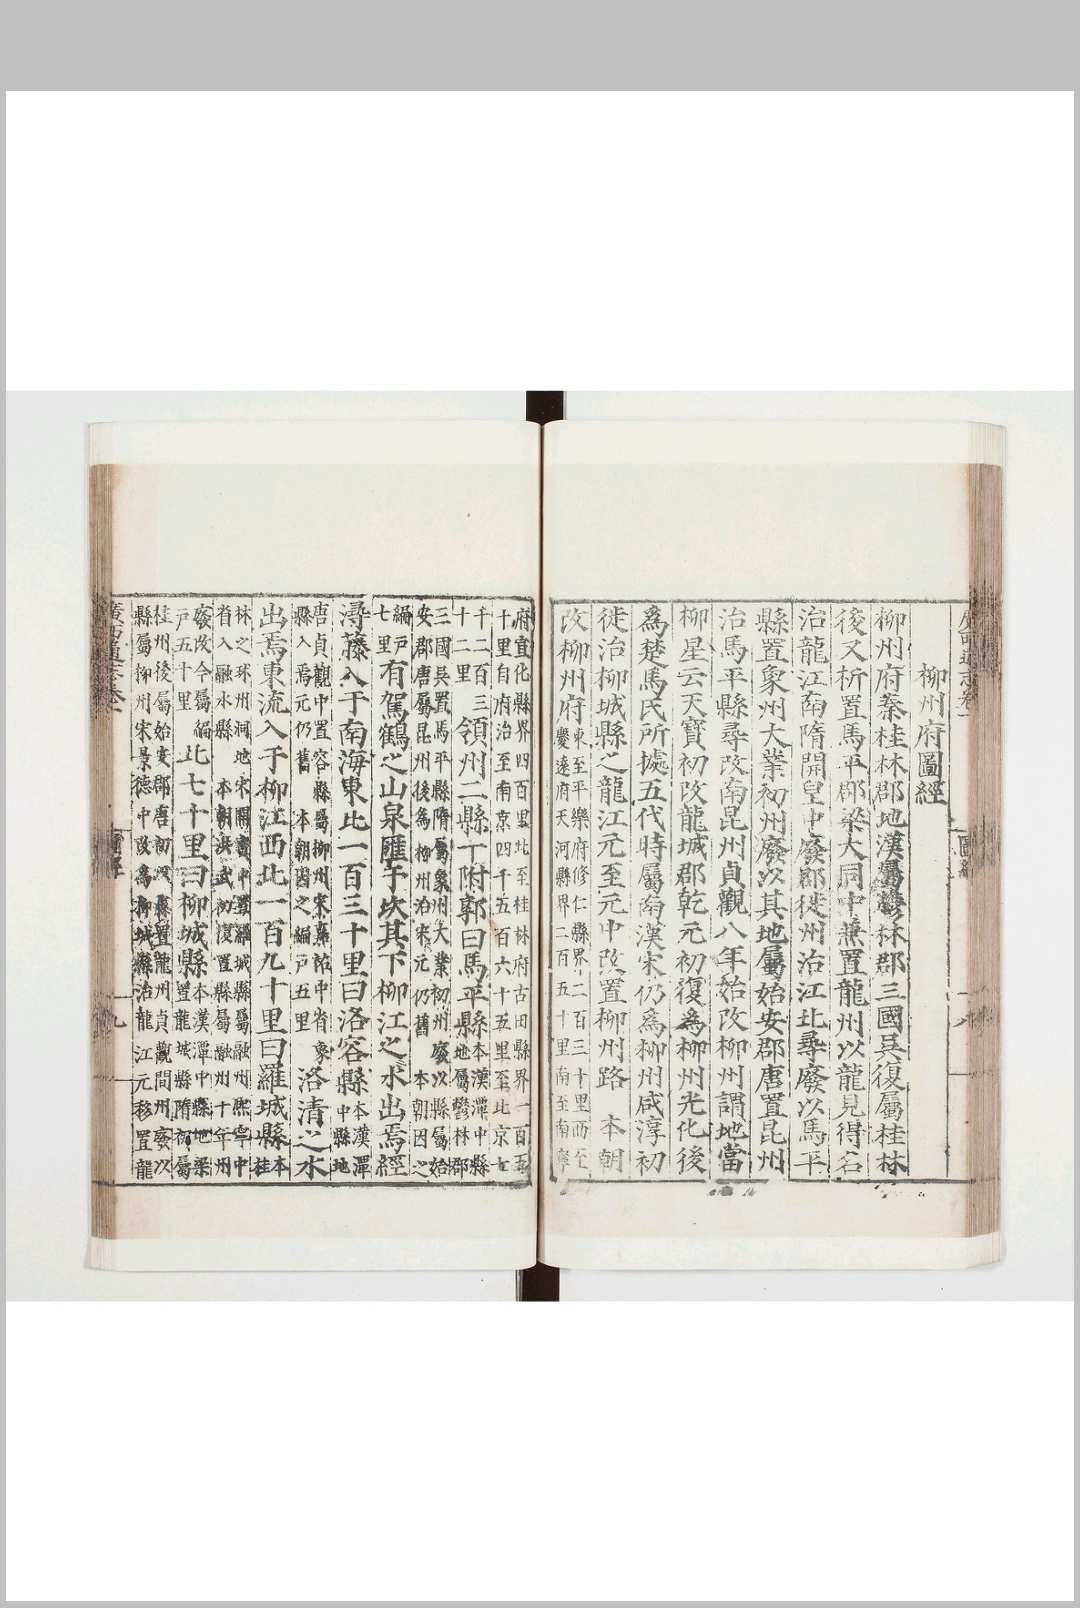 柳州府圖經
柳州府秦桂林郡地漢屬鬱林郡三國吳復屬桂林
後又析置馬平郡梁大同中兼置龍州以龍見得名
治龍江南隋開皇中廢郡徙州治江北尋廢以馬平
縣置象州大業初州廢以其地屬始安郡唐置昆州
治馬平縣尋改南昆州貞觀八年始改柳州謂地當
柳星云天寶初改龍城郡乾元初復為柳州光化後
為楚馬氏所據五代時屬南漢宋仍為柳州咸淳初
徙治柳城縣之龍江元至元中改置柳州路 本朝
改柳州府東至平樂府修仁縣界二百三十里西至
慶遠府天河縣界二百五十里南至南寧
府宣化縣界四百里北至桂林府古田縣界一百五
十里自府治至南京四千五百六十五里至北京七
千二百三
十二里領州二縣十附郭曰馬平縣本漢潭中縣
地屬鬱林郡
三國吳置馬平縣隋屬象州大業初州廢以縣屬始
安郡唐屬昆州後為柳州治宋元仍舊 本朝因之
編戶
七里有駕鶴之山泉匯于坎其下柳江之水出焉經
潯藤入于南海東北一百三十里曰洛容縣本漢潭
中縣地
唐貞觀中置容縣屬柳州宋嘉祐中省象
縣入焉元仍舊 本朝因之編戶五里洛清之水
出焉東流入于柳江西北一百九十里曰羅城縣本
桂
林之琳州洞地宋開寶中置羅城縣屬融州熙寧中
省入融水縣 本朝洪武初復置縣屬融州十年州
廢改今屬編
戶五十里北七十里曰柳城縣本漢潭中縣地梁
置龍城縣隋初屬
桂州後屬始安郡唐初以縣置龍州貞觀間州廢以
縣屬柳州宋景德中改為柳城縣治龍江元移置龍
廣西通志卷一
圖經
十九